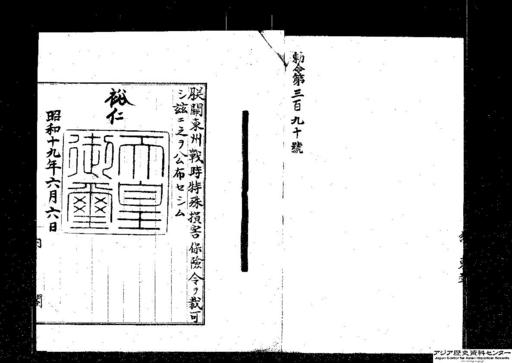 勅令第三百九十號
朕關東州戰時特殊損害保險令ヲ裁可
シ茲ニ之ヲ公布セシム
裕仁
天皇御璽
昭和十九年六月六日
内閣
アジア歴史資料センター
Japan Center for Asian Historical Records